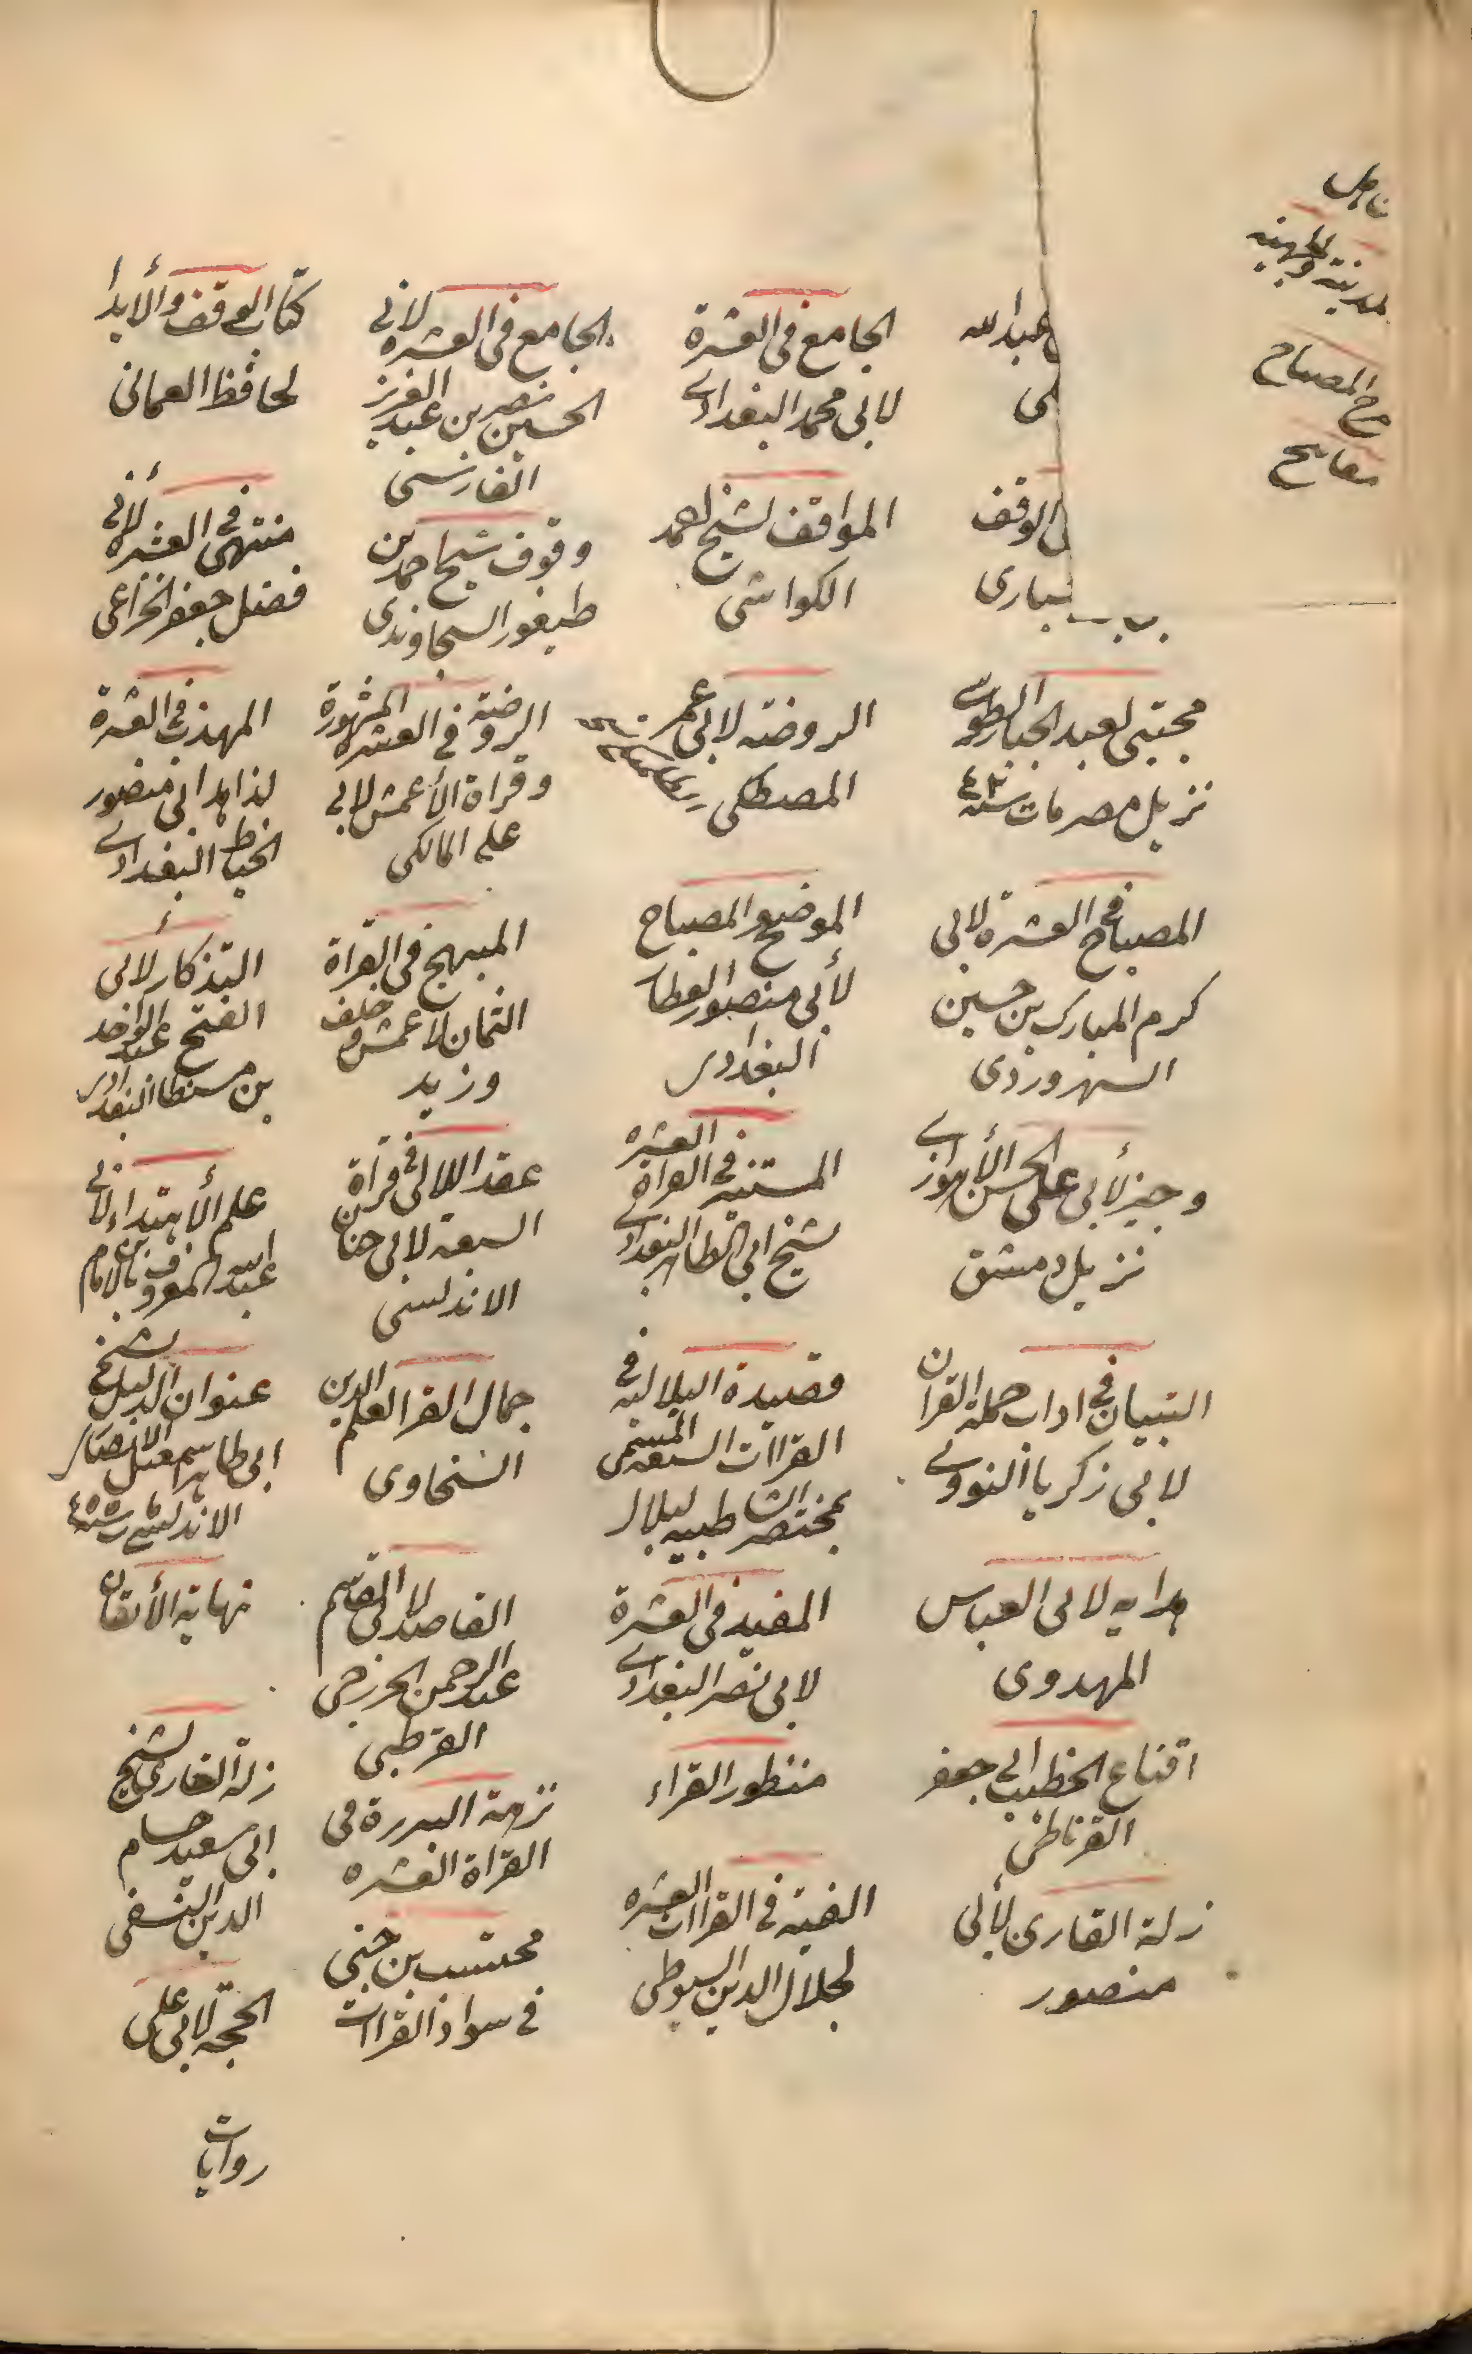 المصباح
مفاتيح
عبدالله
الوقف
الجامع فى العشرة
لابى محمد البغدادى
الجامع فى العشره لابى
الحسين نصر بن عبد العزيز
الفارسى
كتاب الوقف والأبدا
لحافظ العمانى
المواقف لشيخ احمد
الكواشى
وقوف شيخ احمد بن
طيفور السجاوندى
منتهى فى العشره لأبى
فضل جعفر الخزاعى
مجتبى لعبد الجبار الطوسى
نزيل مصر مات سنة ٤٢٠
الروضه لابى عمر
المصطلكى
الروضة فى العشره المشهورة
وقراة الأعمش لابى
على المالكى
المهذب فى العشرة
لذاهد ابى منصور
الخياط البغدادى
المصباح فى العشرة لابى
كرم المبارك بن حسين
السهروردى
الموضح والمصباح
لأبى منصور العطار
البغدادى
المبهج فى القراة
الثمان لاعمش و خلف
وزيد
التذكار لأبى
الفتح عبد الواحد
بن مسطا البغدادى
وجيز لأبى على الحسن الأهوازى
نزيل دمشق
المستنير فى القراة العشره
لشيخ ابى الطاهر البغدادى
عقد اللالى فى قراة
السبعة لابى حيان
الاندلسى
علم الأهتداء لابى
عبدالله المعروف بابن الامام
التبيان فى اداب حملة القران
لابى زكريا النووى
قصيدة البلاليه فى
القراات السبعه المسمى
بمختصر الشاطبيه لبلال
جمال القرا لعلم الدين
السخاوى
عنوان الدليل لشيخ
ابى طاهر اسمعيل الانصارى
الاندلسى سنة ٤٥٥
هدايه لابى العباس
المهدوى
المفيد فى العشرة
لابى نصر البغدادى
القاصد لابى القاسم
عبد الرحمن الخزرجى
القرطبى
نهاية الأتقان
اقناع الخطيب ابى جعفر
القرناطى
منظور القراء
نزهة البررة فى
القراة العشره
زلة القارى لشيخ
ابى سعيد حسام
الدين النسفى
زلة القارى لأبى
منصور
الفيه فى القراات العشره
لجلال الدين السيوطى
محتسب بن جنى
فى سواذ القراات
الحجة لابى على
روايات